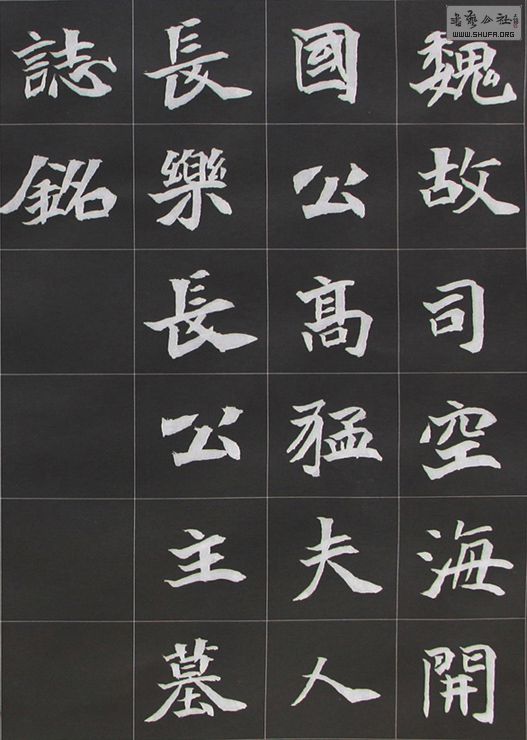 魏故司空海開
國公高猛夫人
長樂長公主墓
誌銘
書藝公社
WWW.SHUFA.ORG